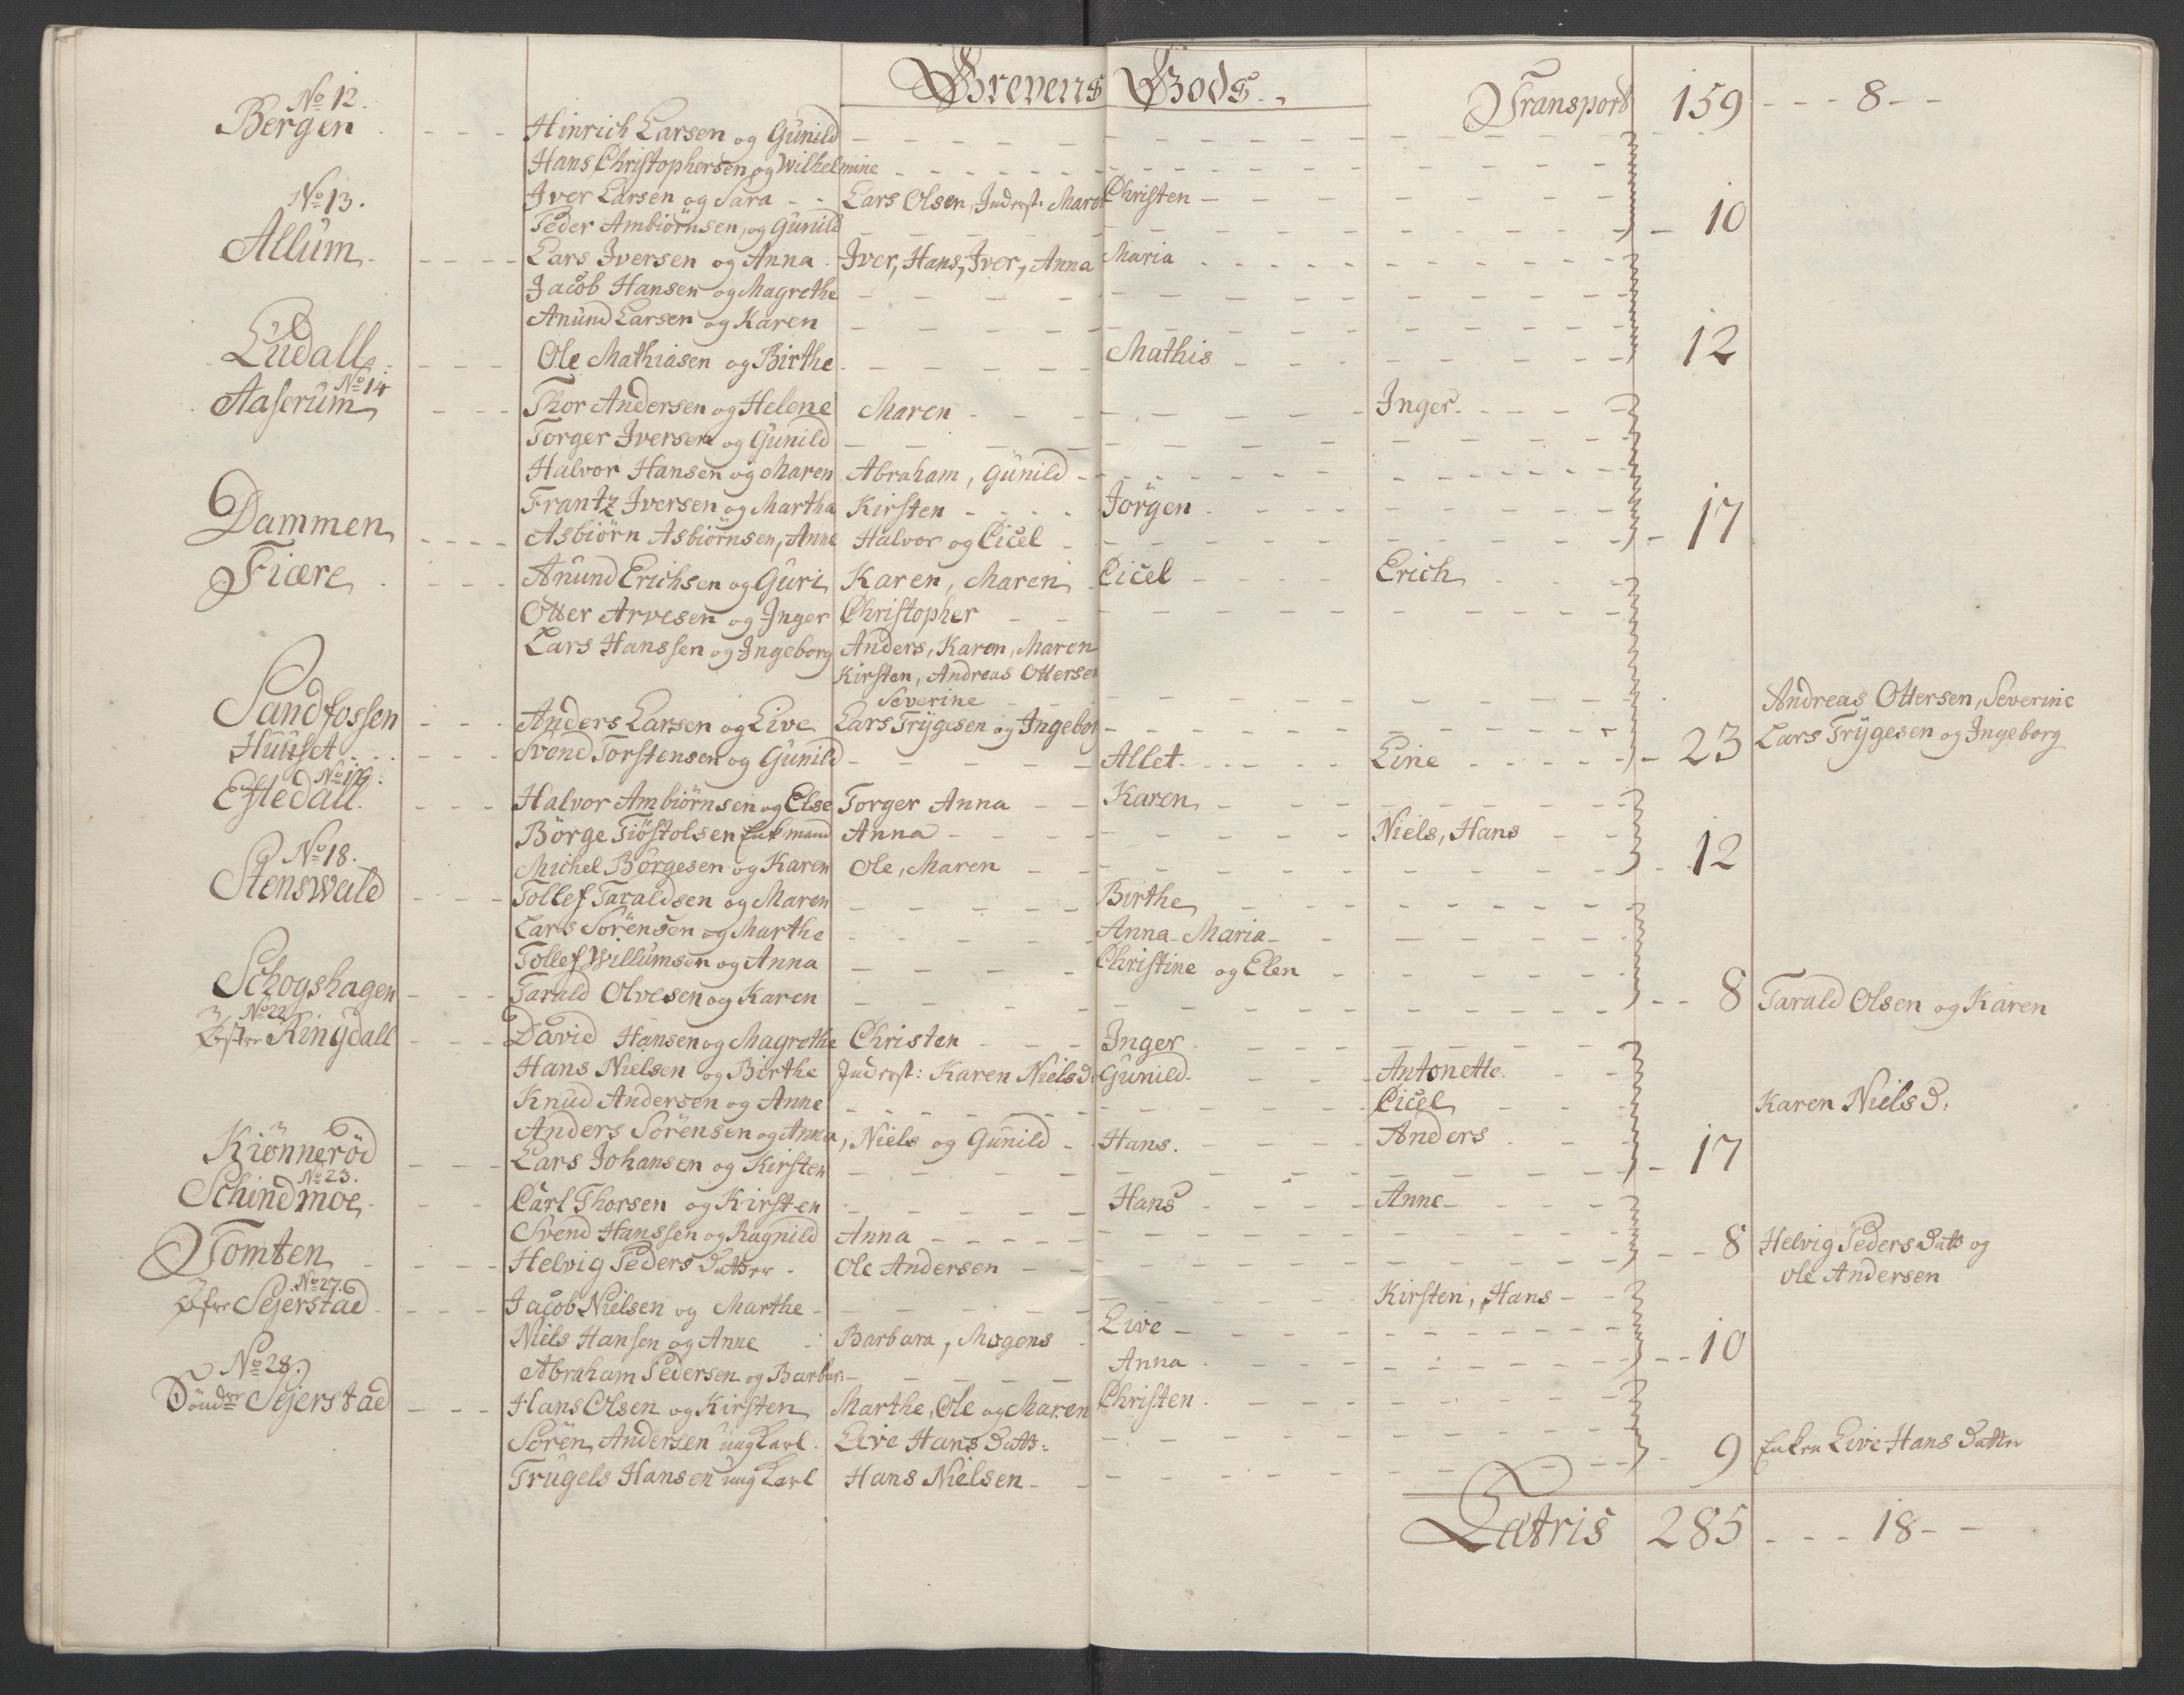 Grevens Gods.
Transport 159 - - - 8 - -
No 12.
Bergen - - - Hinrich Larsen og Gunild
Hans Christophersen og Wilhelmine
No 13. Iver Larsen og Sara - - Lars Olsen, Inderst. Christen - 10
Peder Ambiörnsen, og Gunild
Allum. - - - Lars Iversen og Anna. Iver, Hans, Iver, Anna Maria
Jacob Hansen og Magrethe
Anund Larsen og Karen 12
Ludall - - - Ole Mathiasen og Birthe Mathis
No 14
Aaserum - - - Thor Andersen og Helene Maren Inger.
Torger Iversen og Gunild
Halvor Hansen og Maren Abraham, Gunild
Frantz Iversen og Martha Kirsten Jörgen 17
Dammen - - - Asbiörn Asbiörnsen, Anne Halvor og Cicel
Fiære - - - Anund Erichsen og Guri Karen, Maren Cicel Erich
Otter Arvesen og Inger Christopher
Lars Hanssen og Ingeborg Anders, Karen, Maren
Kirsten, Andreas Ottersen
Severine Andreas Ottersen, Severine
Sandfossen - - - Anders Larsen og Live Lars Trygesen og Ingebor Lars Trygesen og Ingeborg
Huuset - - - Svend Torstensen og Gunild Allet. Line - 23
No 16.
Eftedall. - - - Halvor Ambiörnsen og Else Torger Anna Karen
Börge Tiöstolsen Enkemand Anna Niels, Hans
No 18. Michel Börgesen og Karen Ole, Maren 12
Stenswald - - - Tollef Taraldsen og Maren Birthe
Lars Sörensen og Marthe Anna Maria
Tollef Willumsen og Anna Christine og Elen
Schogshagen - - - Tarald Olvesen og Karen 8 Tarald Olsen og Karen
No 22
Östre Ringdall - - - David Hansen og Magrethe Christen Inger
Hans Nielsen og Birthe Inderst: Karen Niels D: Gunild. Antonette.
Knud Andersen og Anne Cicel Karen Niels D:
Anders Sörensen og Anna, Niels og Gunild Hans. Anders
Kiönneröd - - - Lars Johansen og Kirsten 17
No 23.
Schindmoe - - - Carl Thorsen og Kirsten Hans Anne
Svend Hanssen og Ragnild Anna 8 Helvig Peders Datt og
Tomten - - - Helvig Peders Datter Ole Andersen Ole Andersen
No 27.
Öfre Sejerstad - - - Jacob Nielsen og Marthe Kirsten, Hans
Niels Hansen og Anne Barbara, Mogens Live 10
No 28. Abraham Pedersen og Barbar: Anna
Söndr Sejerstad - - - Hans Olsen og Kirsten Marthe, Ole og Maren Christen
Sören Andersen ung Karl. Live Hans Datt: 9 Enken Live Hans Datter
Trugels Hansen ung Karl Hans Nielsen
Latris 285 - - - 18 - -